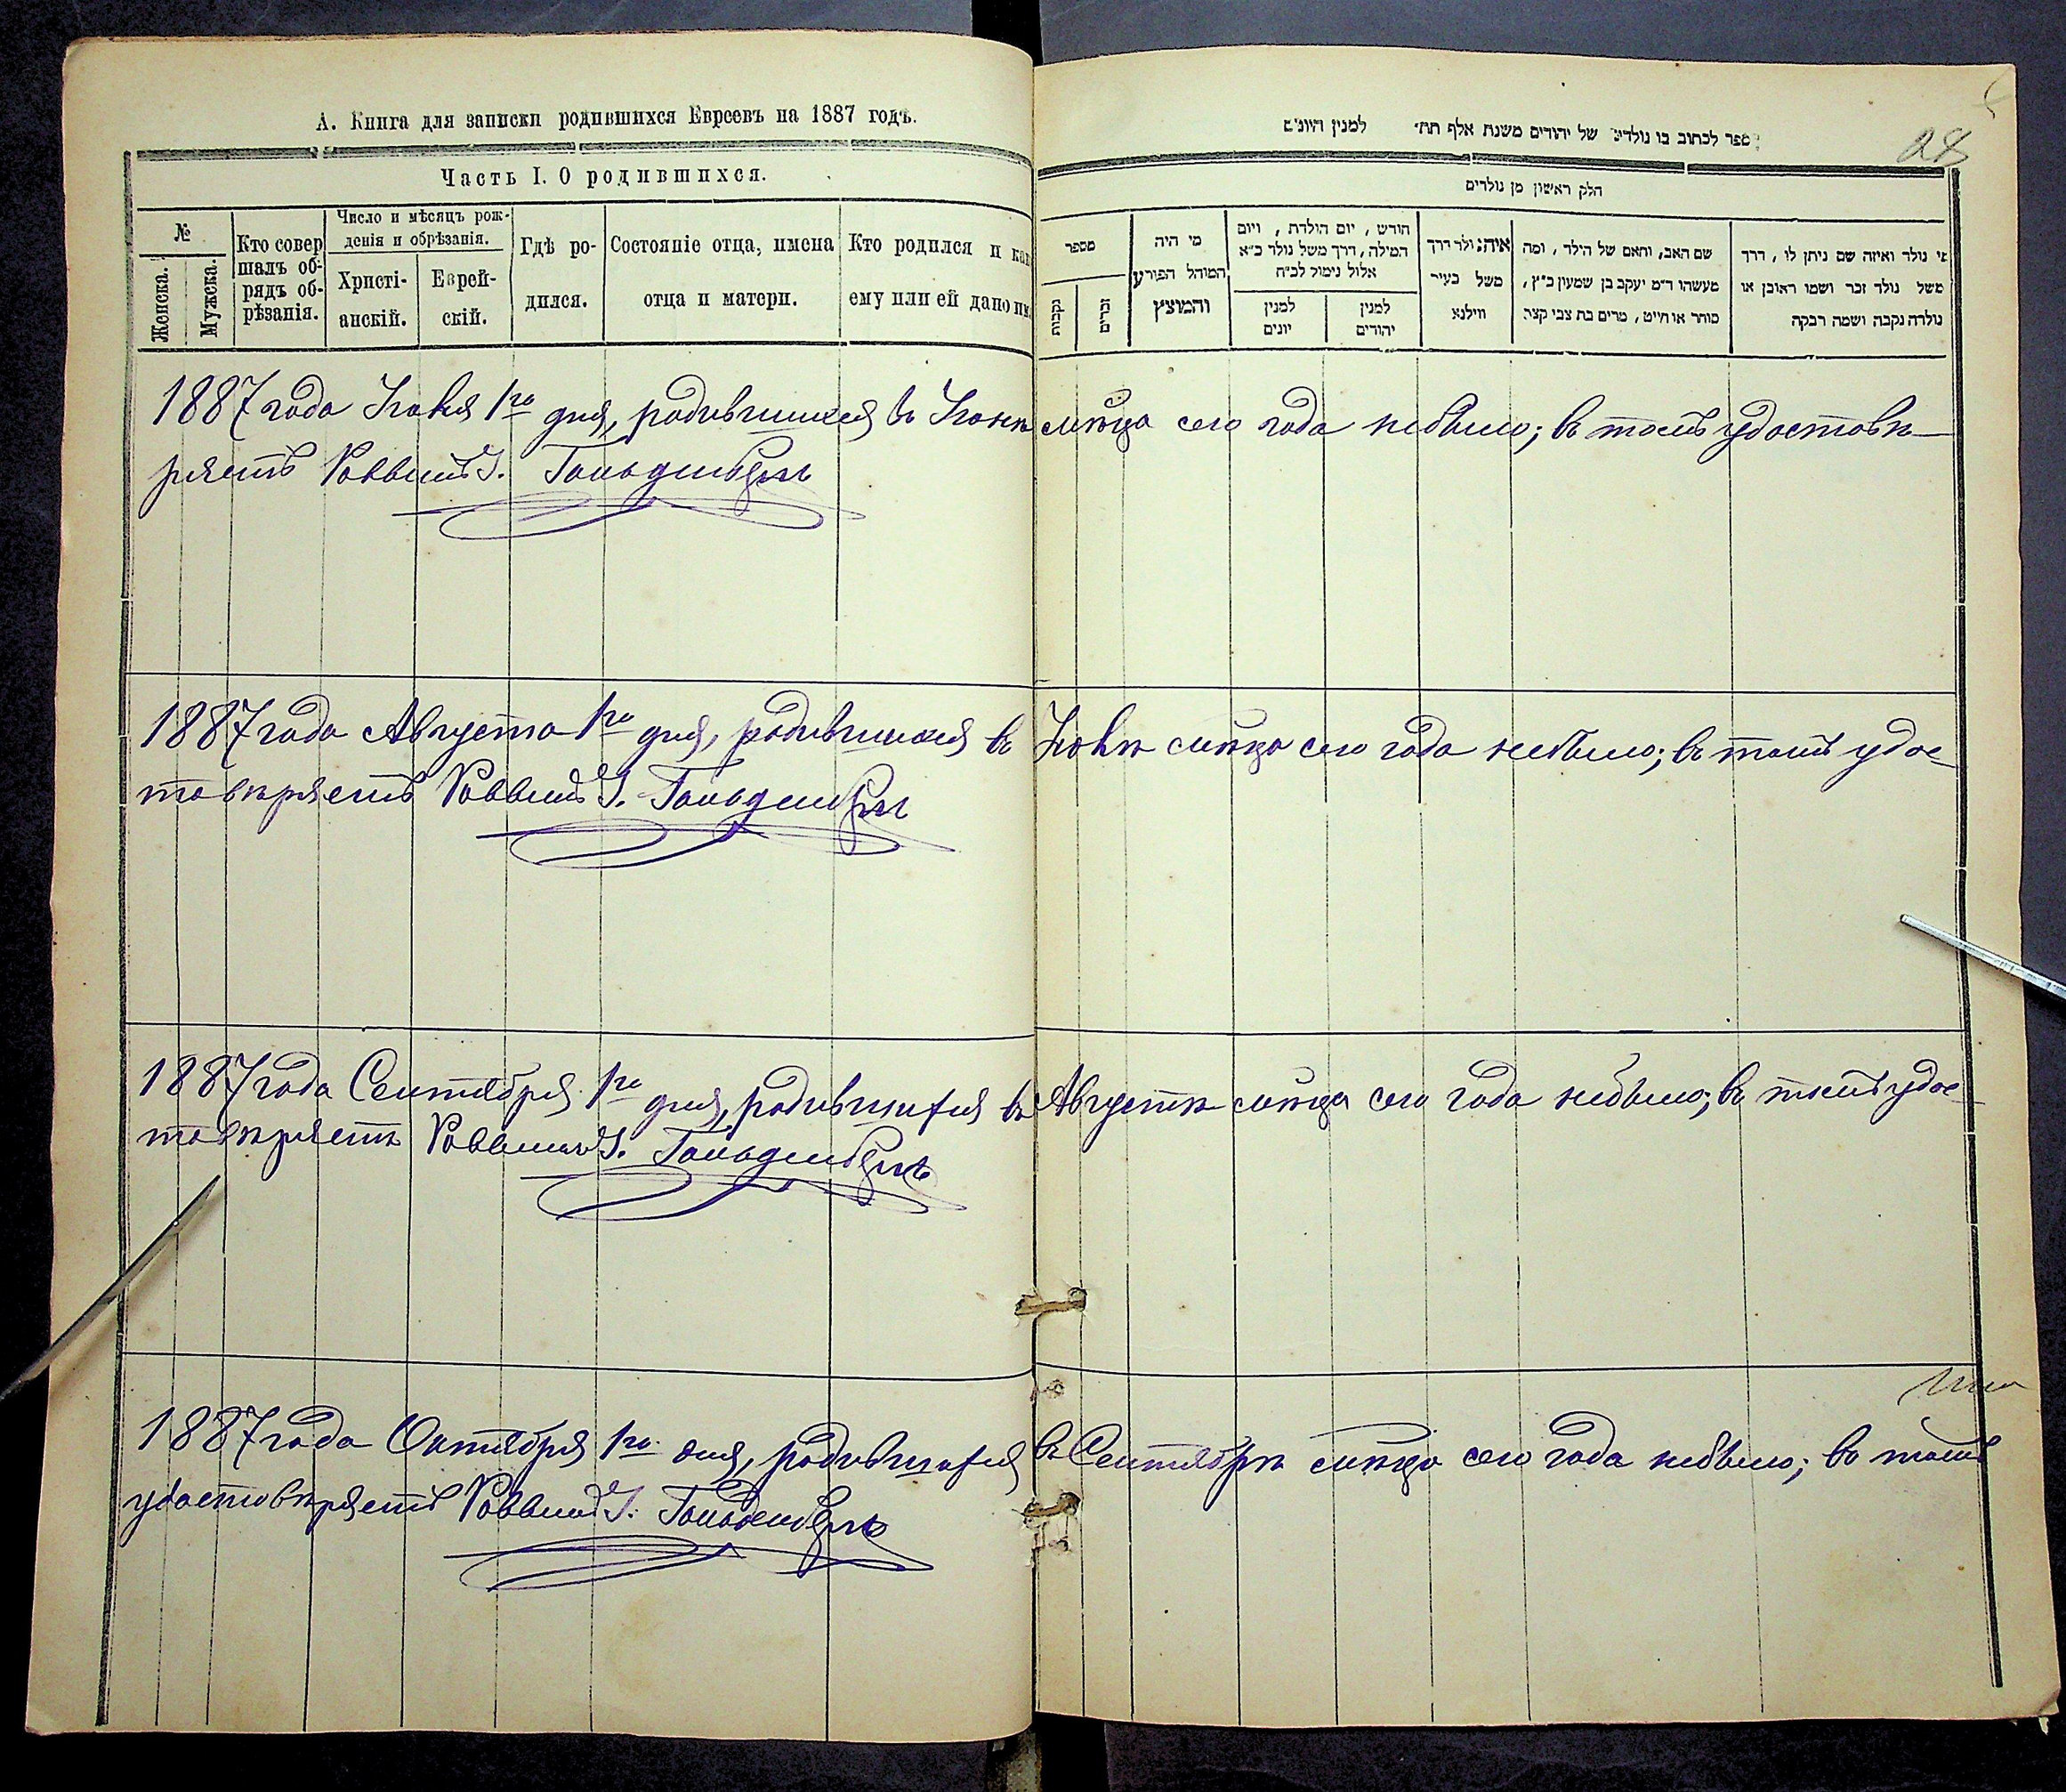 А. Книга для записки родившихся Евреевъ на 1887 годъ.
Часть I. О родившихся.
№
Женска.
Мужска.
Кто совер
шалъ об-
рядъ об-
рѣзанія.
Число и мѣсяцъ рож-
денія и обрѣзанія.
Христі-
анскій.
Еврей-
скій.
Гдѣ ро-
дился.
Состояніе отца, имена
отца и матери.
Кто родился и как
ему или ей дано
1887 года Іюля 1го дня, родившихся въ Іюнѣ
ряетъ Раввинъ І. Гольденбергъ
1887 года Августа 1го дня, родившихся въ
товѣряетъ Раввинъ І. Гольденбергъ
1887 года Сентября 1го дня, родившихся въ
товѣряетъ Раввинъ І. Гольденбергъ
1887 года Октября 1го дня, родившихся
удостовѣряетъ Раввинъ І. Гольденбергъ
ספר לכתוב בו נולדים של יהודים משנת אלף תת׳ למנין היונים
28
חלק ראשון מן נולדים
מספר
נקבות
זכרים
מי היה
המוהל הפורע
והמוצץ
חודש, יום הולדת, ויום
המילה, דרך משל נולד כ״א
אלול נימול לכ״ח
למנין
יונים
למנין
יהודים
איה נולד דרך
משל בעיר
ווילנא
שם האב, והאם של הילד, ומה
מעשהו ד״מ יעקב בן שמעון כ״ץ,
סוחר או חייט, מרים בת צבי קצב
מי נולד ואיזה שם ניתן לו, דרך
משל נולד זכר ושמו ראובן או
נולדה נקבה ושמה רבקה
мѣсяца сего года небыло; въ томъ удостовѣ-
Іюлѣ мѣсяца сего года небыло; въ томъ удос-
Августѣ мѣсяца сего года небыло; въ томъ удос-
въ Сентябрѣ мѣсяца сего года небыло; въ томъ